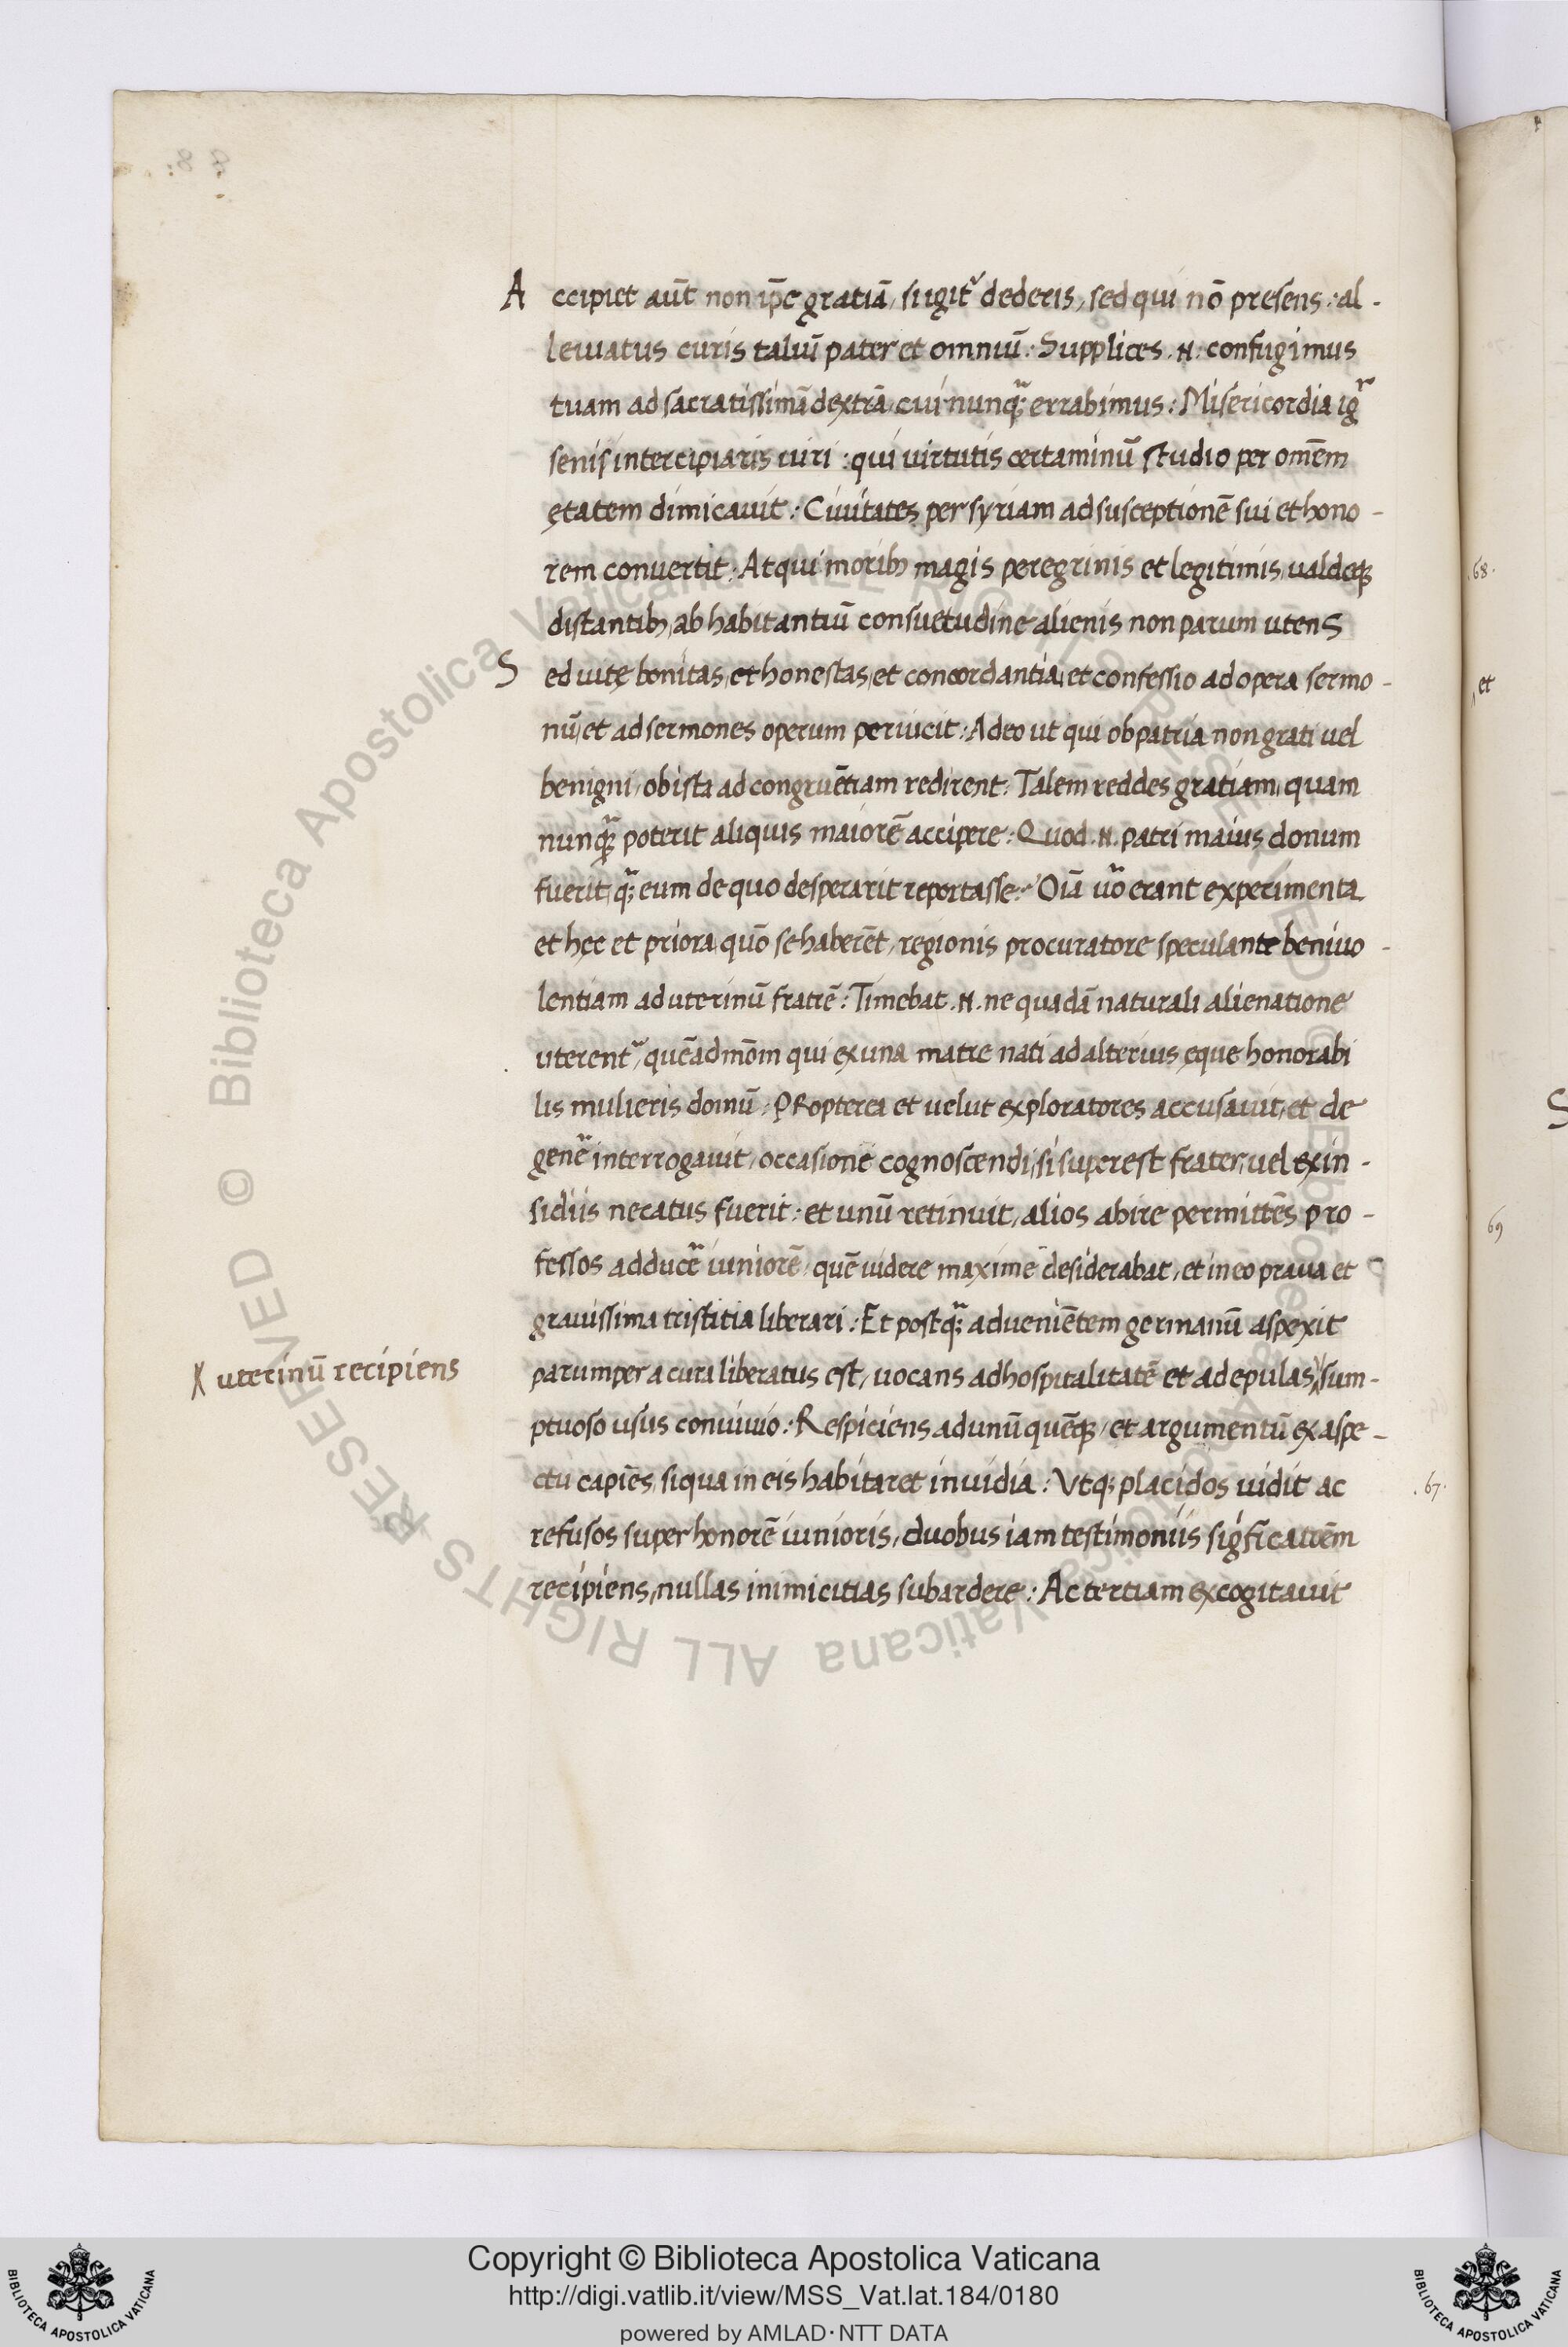 Accipiet aūt non ip̄e gratiā, si igit᷑ dederis, sed qui nō presens: al-
leuiatus curis taliū pater et omniū: Supplices .N. confugimus
tuam ad sacratissimā dextrā, cui nunq̃; errabimus: Misericordia ig᷑
senis intercipiaris uiri: qui uirtutis certaminū studio per omēm
ętatem dimicauit: Ciuitates per syriam ad susceptionē sui et hono-
rem conuertit: Atqui moribꝫ magis peregrinis et legitimis, ualdeqꝫ
distantibꝫ, ab habitantiū consuetudine alienis non parum utens
Sed uitę bonitas, et honestas, et concordantia, et confessio ad opera sermo-
nū, et ad sermones operum peruicit: Adeo ut qui ob patria non grati uel
benigni, ob ista ad congruētiam redirent: Talem reddes gratiam, quam
nunq̃; poterit aliquis maiorē accipere: Quod .N. patri maius donum
fuerit, q̃; eum de quo desperarit reportasse: Oīa ūo erant experimenta
et hęc et priora, quō se haberēt, regionis procuratore speculante beniuo-
lentiam ad uterinū fratrē: Timebat .N. ne quadā naturali alienatione
uterent᷑, quēadmōm qui ex una matre nati ad alterius ęque honorabi
lis mulieris domū: PRopterea et uelut exploratores accusauit, et de
genẽ interrogauit, occasione cognoscendi, si superest frater, uel ex in-
sidiis necatus fuerit: et unū retinuit, alios abire permittēs pro-
fessos adducẽ iuniorē, quē uidere maxime desiderabat, et in eo praua et
grauissima tristitia liberari: Et postq̃; aduenientem germanū aspexit
X uterinū recipiens
parumper a cura liberatus est, uocans ad hospitalitatē et ad epulas, sum-
ptuoso usus conuiuio: Respiciens ad unū quēqꝫ, et argumentū ex aspe-
ctu capiēs, si qua in eis habitaret inuidia: Vtq; placidos uidit ac
refusos super honorē iunioris, duobus iam testimoniis sigficatiōem
recipiens, nullas inimicitias subardere: Ac tertiam excogitauit
.68.
et
69
.67.
S
Copyright © Biblioteca Apostolica Vaticana
http://digi.vatlib.it/view/MSS_Vat.lat.184/0180
powered by AMLAD·NTT DATA
BIBLIOTECA APOSTOLICA VATICANA
BIBLIOTECA APOSTOLICA VATICANA
© Biblioteca Apostolica Vaticana ALL RIGHTS RESERVED © Biblioteca Apostolica Vaticana ALL RIGHTS RESERVED